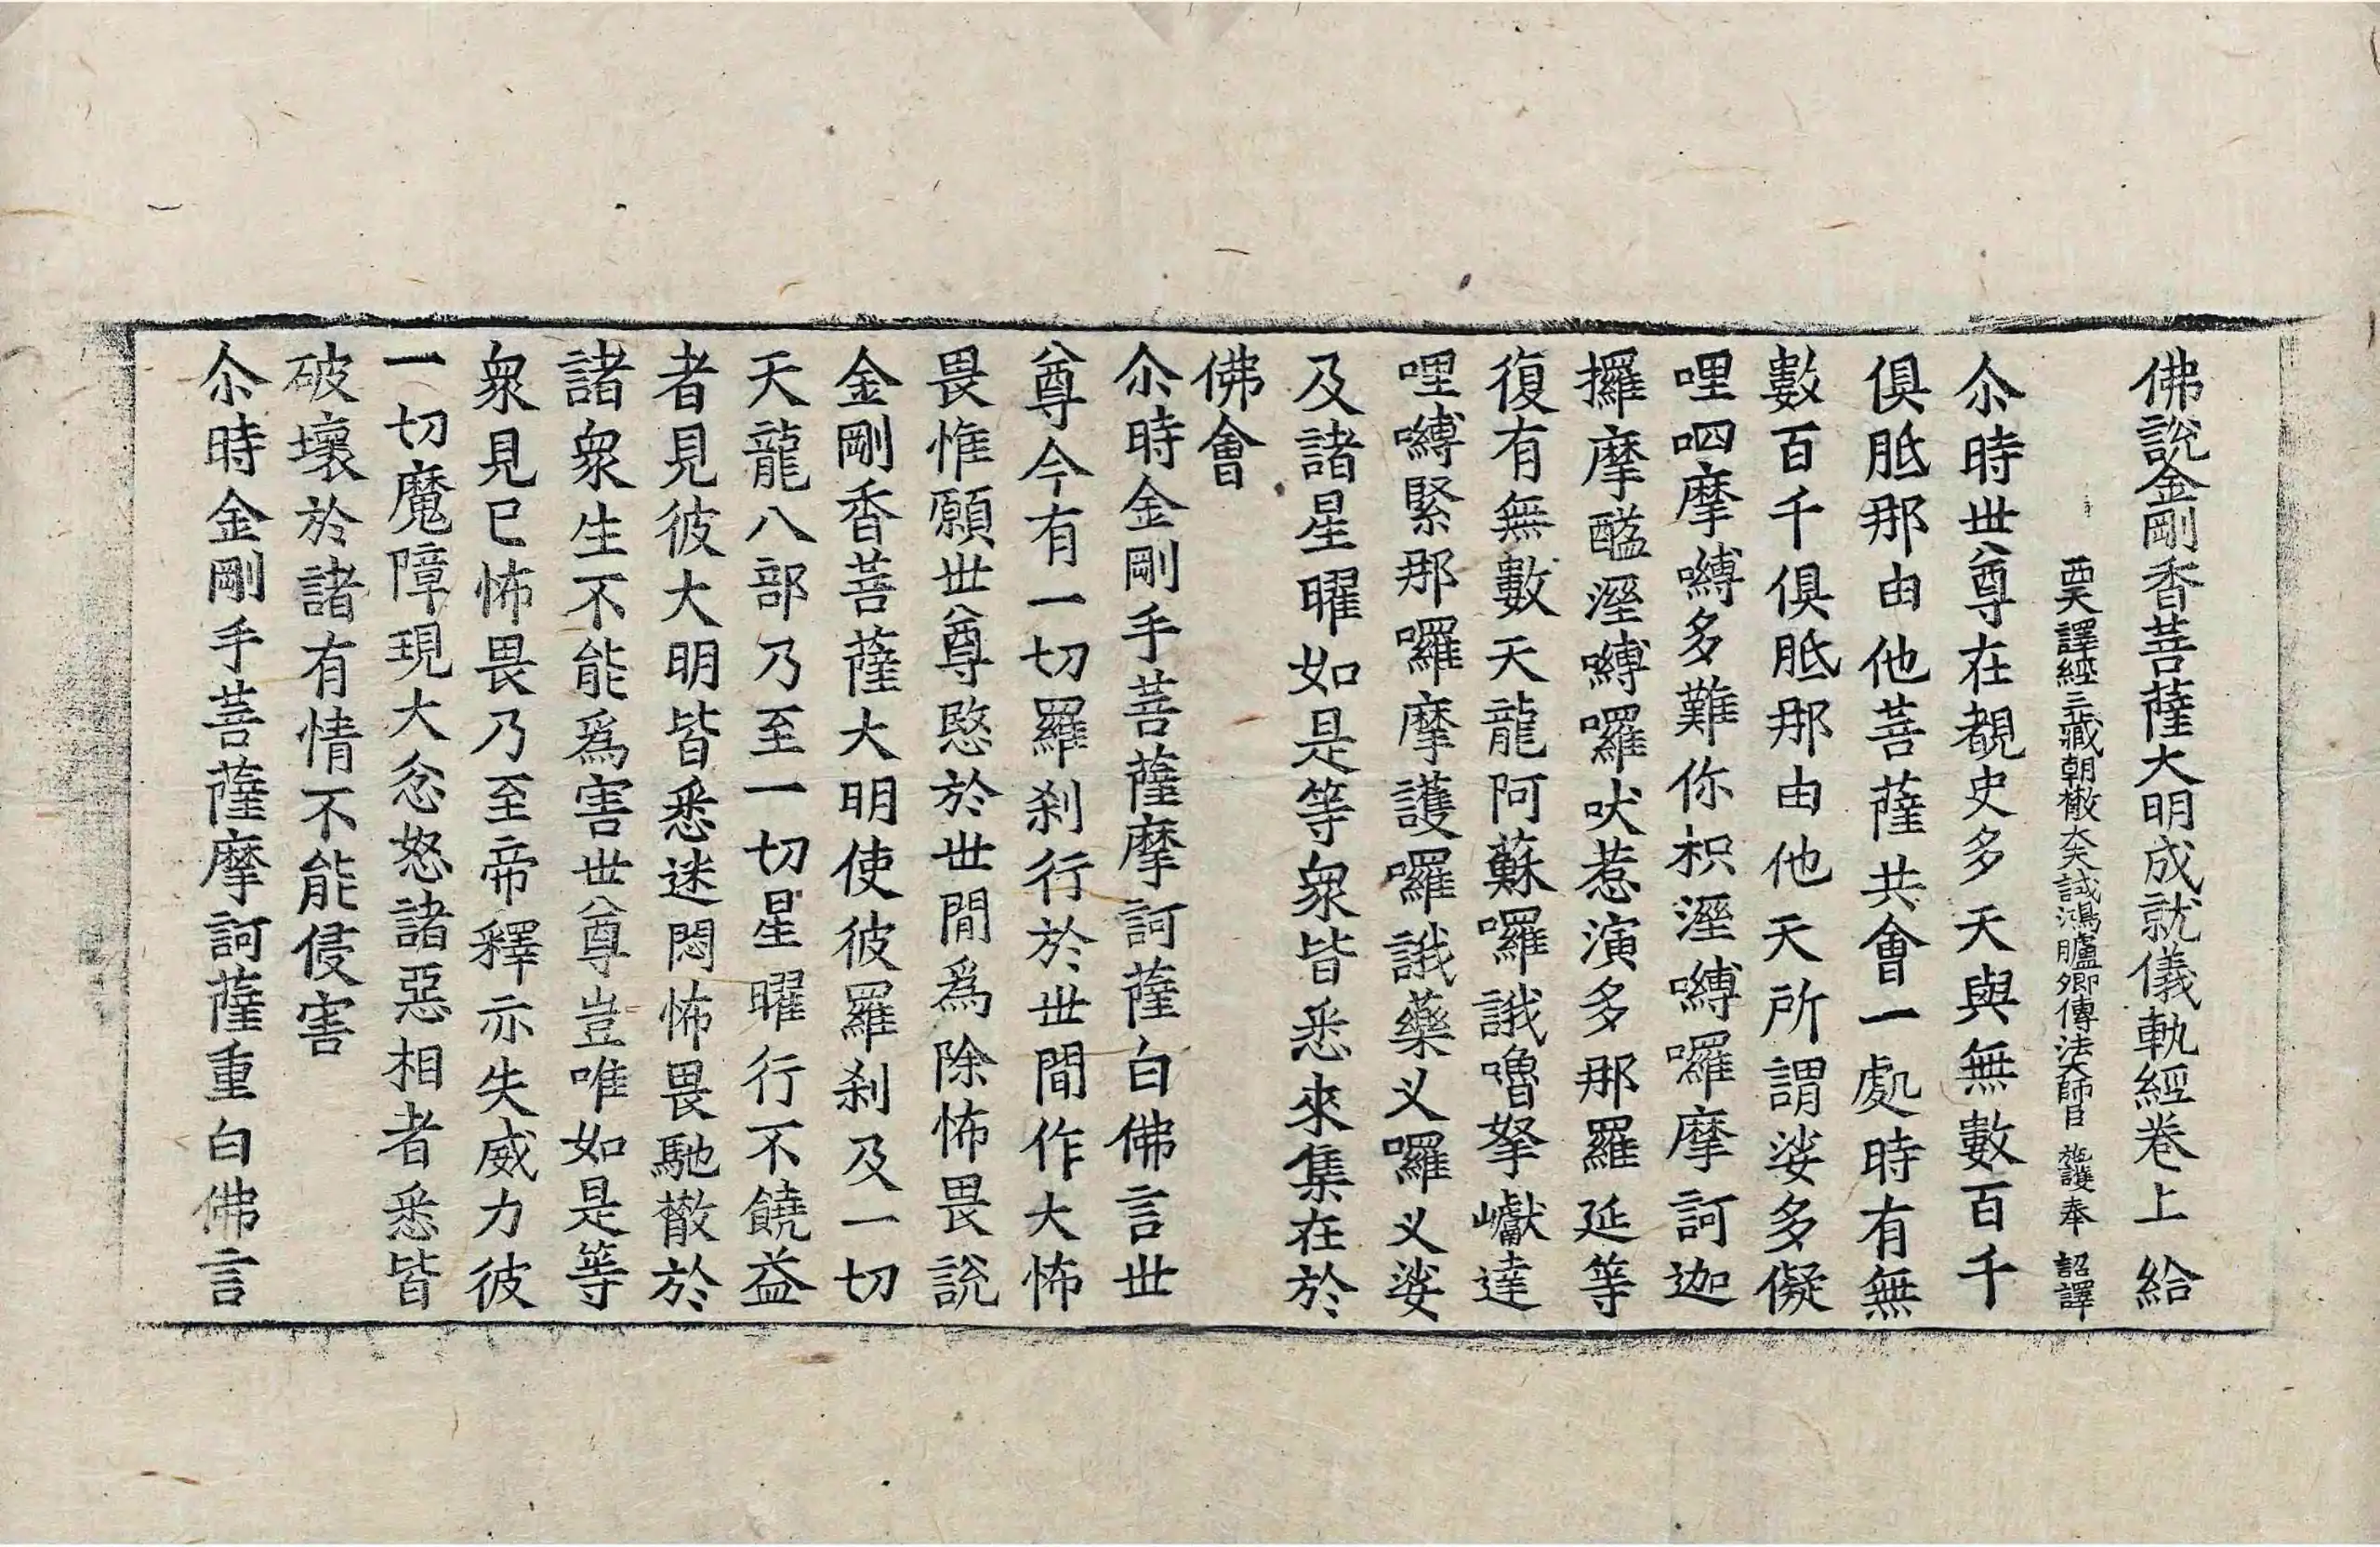 佛說金剛香菩薩大明成就儀軌經卷上 給
西天譯經三藏朝散大夫試鴻臚卿傳法大師臣 施護奉 詔譯
尒時世尊在覩史多天與無數百千
俱胝那由他菩薩共會一處時有無
數百千俱胝那由他天所謂娑多儗
哩呬摩嚩多難你枳溼嚩囉摩訶迦
攞摩醯溼嚩囉吠惹演多那羅延等
復有無數天龍阿蘇囉誐嚕拏巘達
哩嚩緊那囉摩護囉誐藥义囉义娑
及諸星曜如是等衆皆悉來集在於
佛會
尒時金剛手菩薩摩訶薩白佛言世
尊今有一切羅刹行於世間作大怖
畏惟願世尊愍於世間爲除怖畏說
金剛香菩薩大明使彼羅刹及一切
天龍八部乃至一切星曜行不饒益
者見彼大明皆悉迷悶怖畏馳散於
諸衆生不能爲害世尊豈唯如是等
衆見已怖畏乃至帝釋亦失威力彼
一切魔障現大忿怒諸惡相者悉皆
破壞於諸有情不能侵害
尒時金剛手菩薩摩訶薩重白佛言